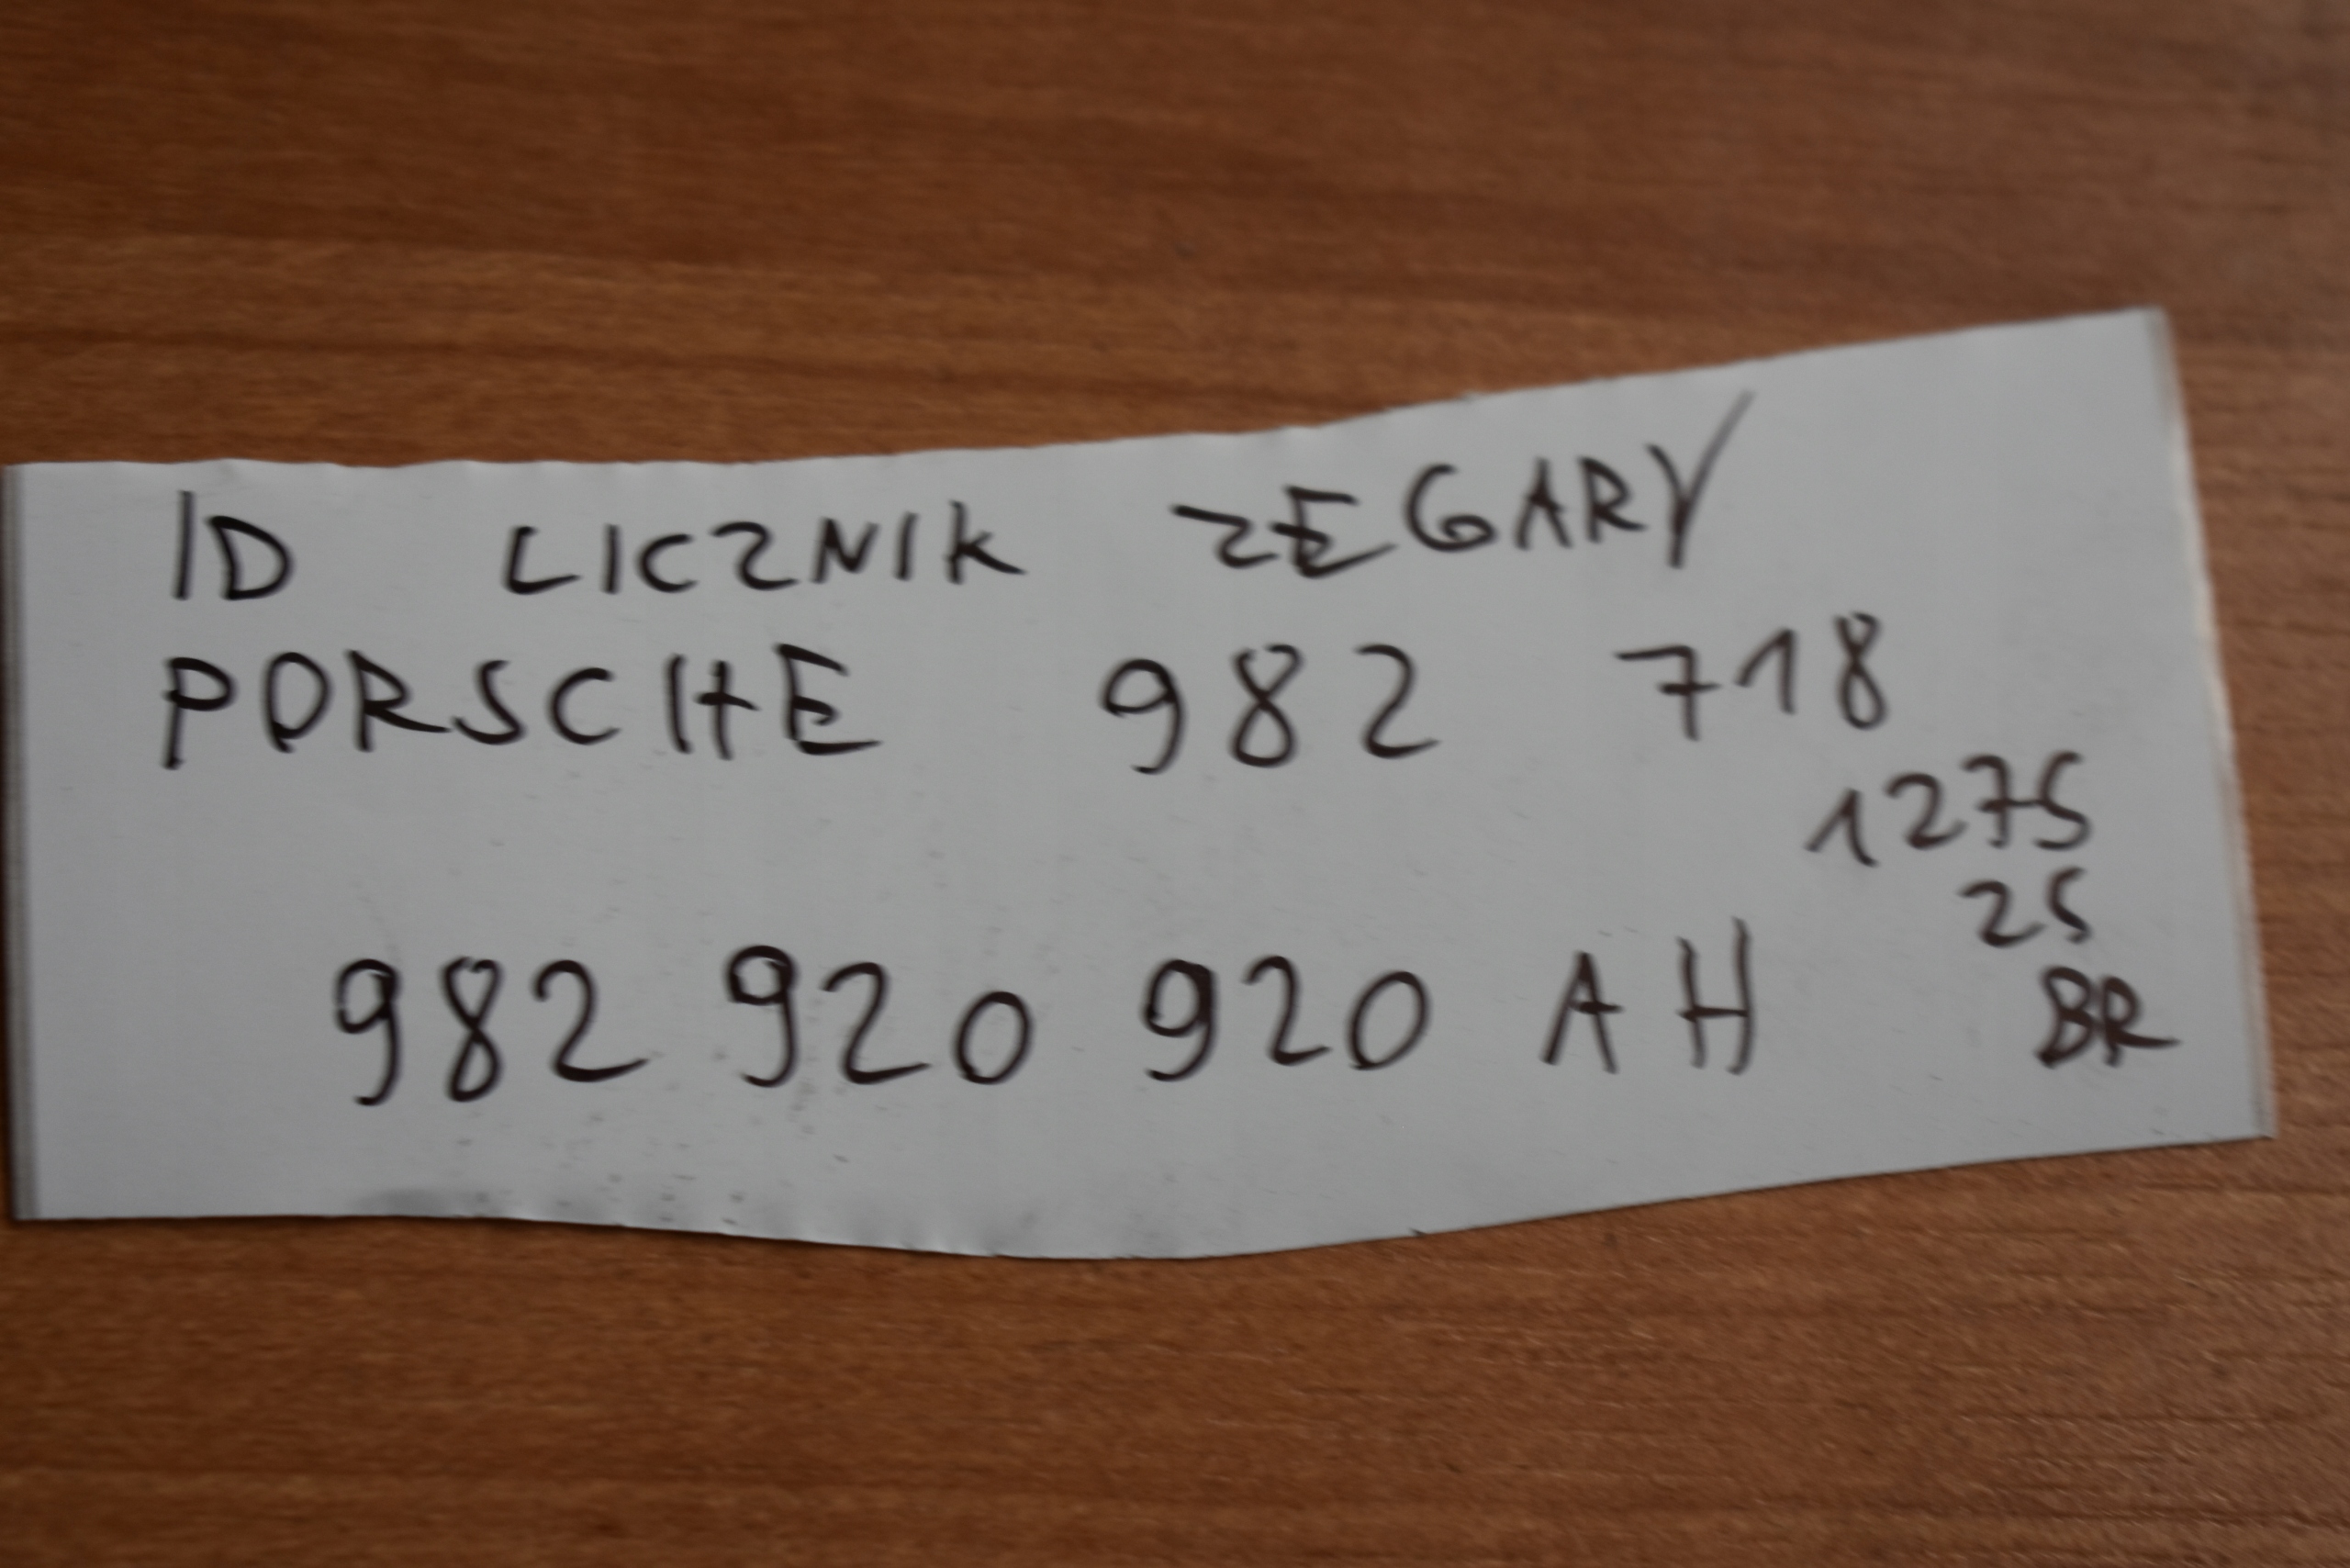 ID LICZNIK ZEGARY
PORSCHE 982 718
1275
25
982 920 920 AH
BR